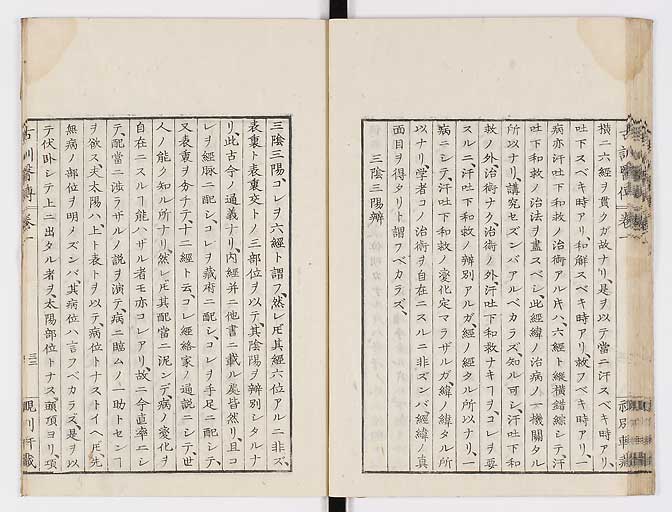 横ニ六經ヲ貫クガ故ナリ、是ヲ以テ當ニ汗スベキ時アリ、
吐下スベキ時アリ、和解スベキ時アリ、救フベキ時アリ、一
病亦汗吐下和救ノ治術アル𪜈、六經ト縱横錯綜シテ、汗
吐下和救ノ治法ヲ盡スベシ、此經緯ノ治病ノ一機關タル
所以ナリ、講究セズンバアルベカラズ、知ル可シ、汗吐下和
救ノ外治術ナク、治術ノ外、汗吐下和救ナキヿヲ、コレヲ要
スルニ、汗吐下和救ノ辨別アルガ、經ノ經タル所以ナリ、一
病ニシテ、汗吐下和救ノ變化定マラザルガ、緯ノ緯タル所
以ナリ、学者コノ治術ヲ自在ニスルニ非ズンバ、經緯ノ真
面目ヲ得タリト謂フベカラズ、
三陰三陽辨
三陰三陽、コレヲ六經ト謂フ、然レ𪜈其經六位アルニ非ズ、
表裏ト表裏交トノ三部位ヲ以テ、其陰陽ヲ辨別シタルナ
リ、此古今ノ通義ナリ、内經并ニ他書ニ載ル処皆然リ、且コ
レヲ經脈ニ配シ、コレヲ藏府ニ配シ、コレヲ手足ニ配シテ、
又表裏ヲ分チテ、十二經ト云、コレ經絡家ノ通説ニシテ、世
人ノ能ク知ル所ナリ、然レ𪜈其配當ニ泥ンデ、病ノ變化ヲ
自在ニスルヿ能ハザル者モ亦コレアリ、故ニ今直率ニシ
テ、配當ニ渉ラザルノ説ヲ演テ、病ニ臨ムノ一助トセンヿ
ヲ欲ス、夫太陽ハ、上ト表トヲ以テ、病位トナストイヘ𪜈、先
無病ノ部位ヲ明メズンバ、其病位ハ言フベカラズ、是ヲ以
テ伏卧シテ上ニ出タル者ヲ、太陽部位トナス、頭頂ヨリ、項
古訓醫傳
卷一
三二